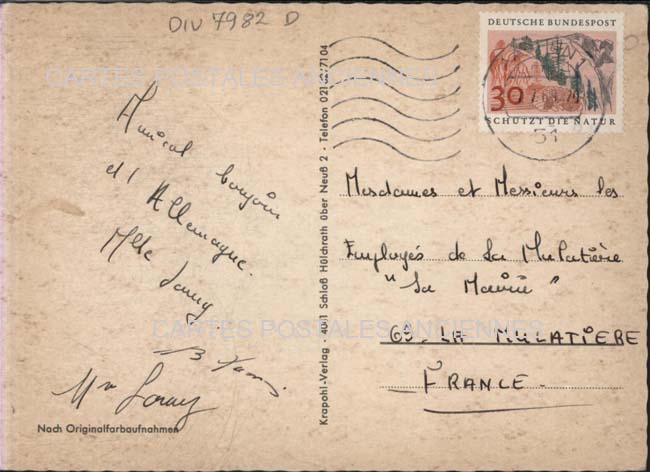 DIV 7982 D
CARTES POSTALES ANCIENNES
Amical bonjour
d'Allemagne.
Mlle
Nach Originalfarbaufnahmen
Krapohl-Verlag · 4041 Schloß Hülchrath über Neuß 2 · Telefon 02182/7104
DEUTSCHE BUNDESPOST
30
SCHÜTZT DIE NATUR
51
Mesdames et Messieurs les
Employés de La Mulatière
"La Mairie"
69. LA MULATIERE
FRANCE.
CARTES POSTALES ANCIENNES